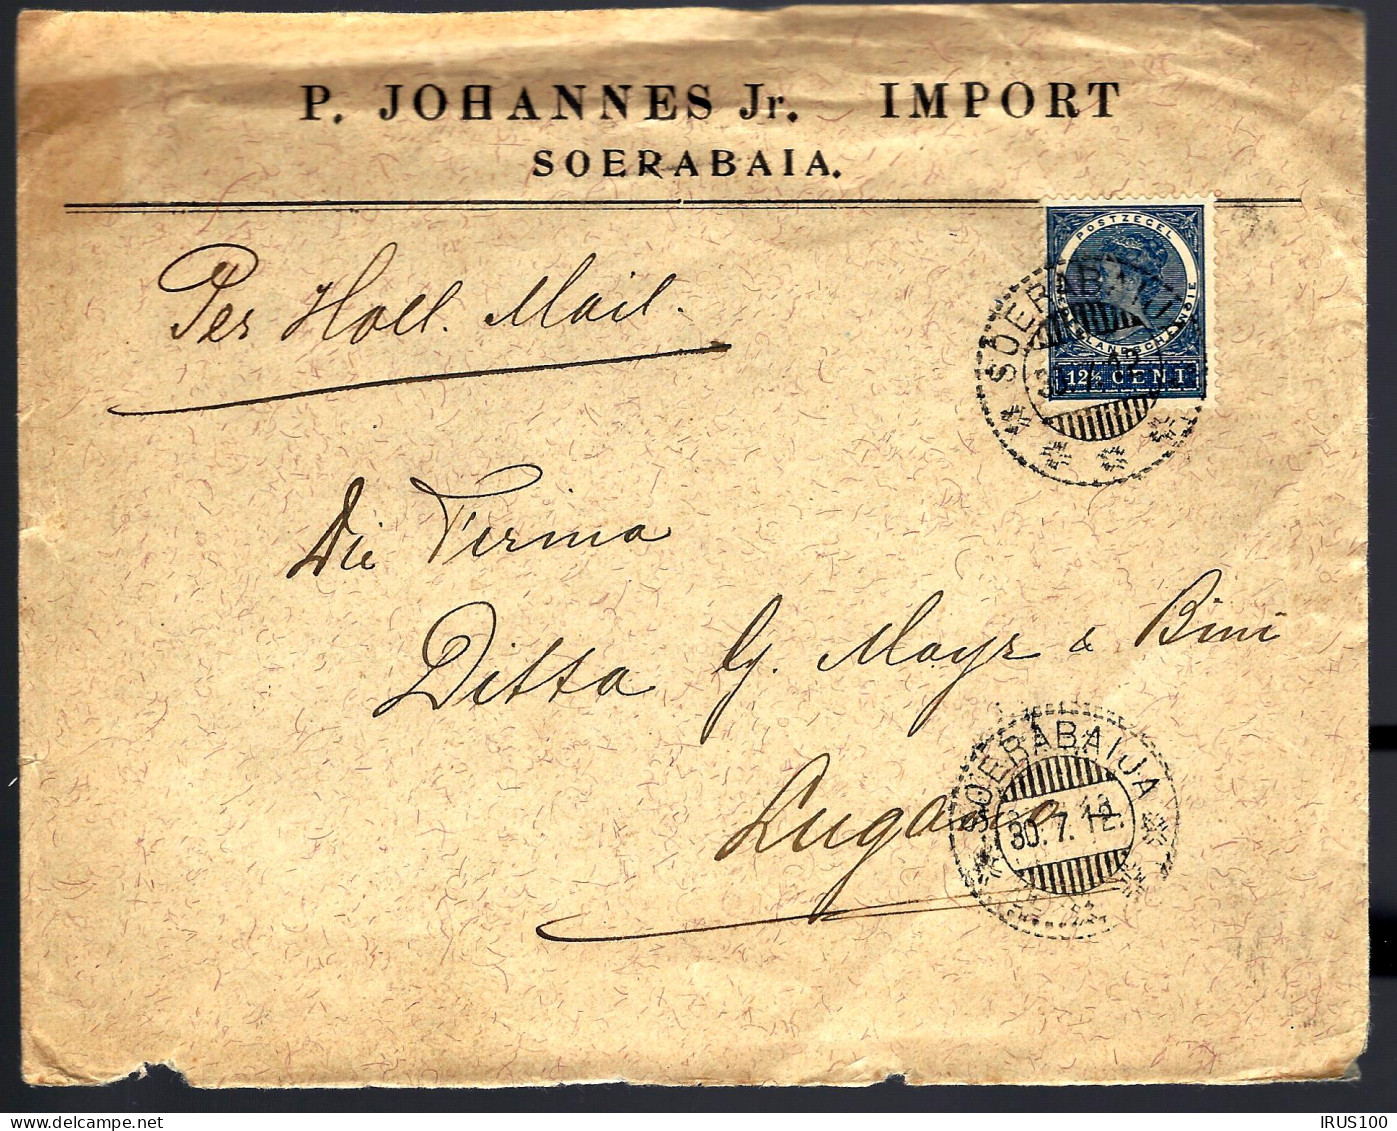 P. JOHANNES Jr. IMPORT
SOERABAIA.
Per Holl. Mail.
POSTZEGEL
12½ CENT
SOERABAIJA
30.7.12
Die Firma
Ditta G. Mayr & Bini
Lugano
SOERABAIJA
30.7.12.
IRUS100